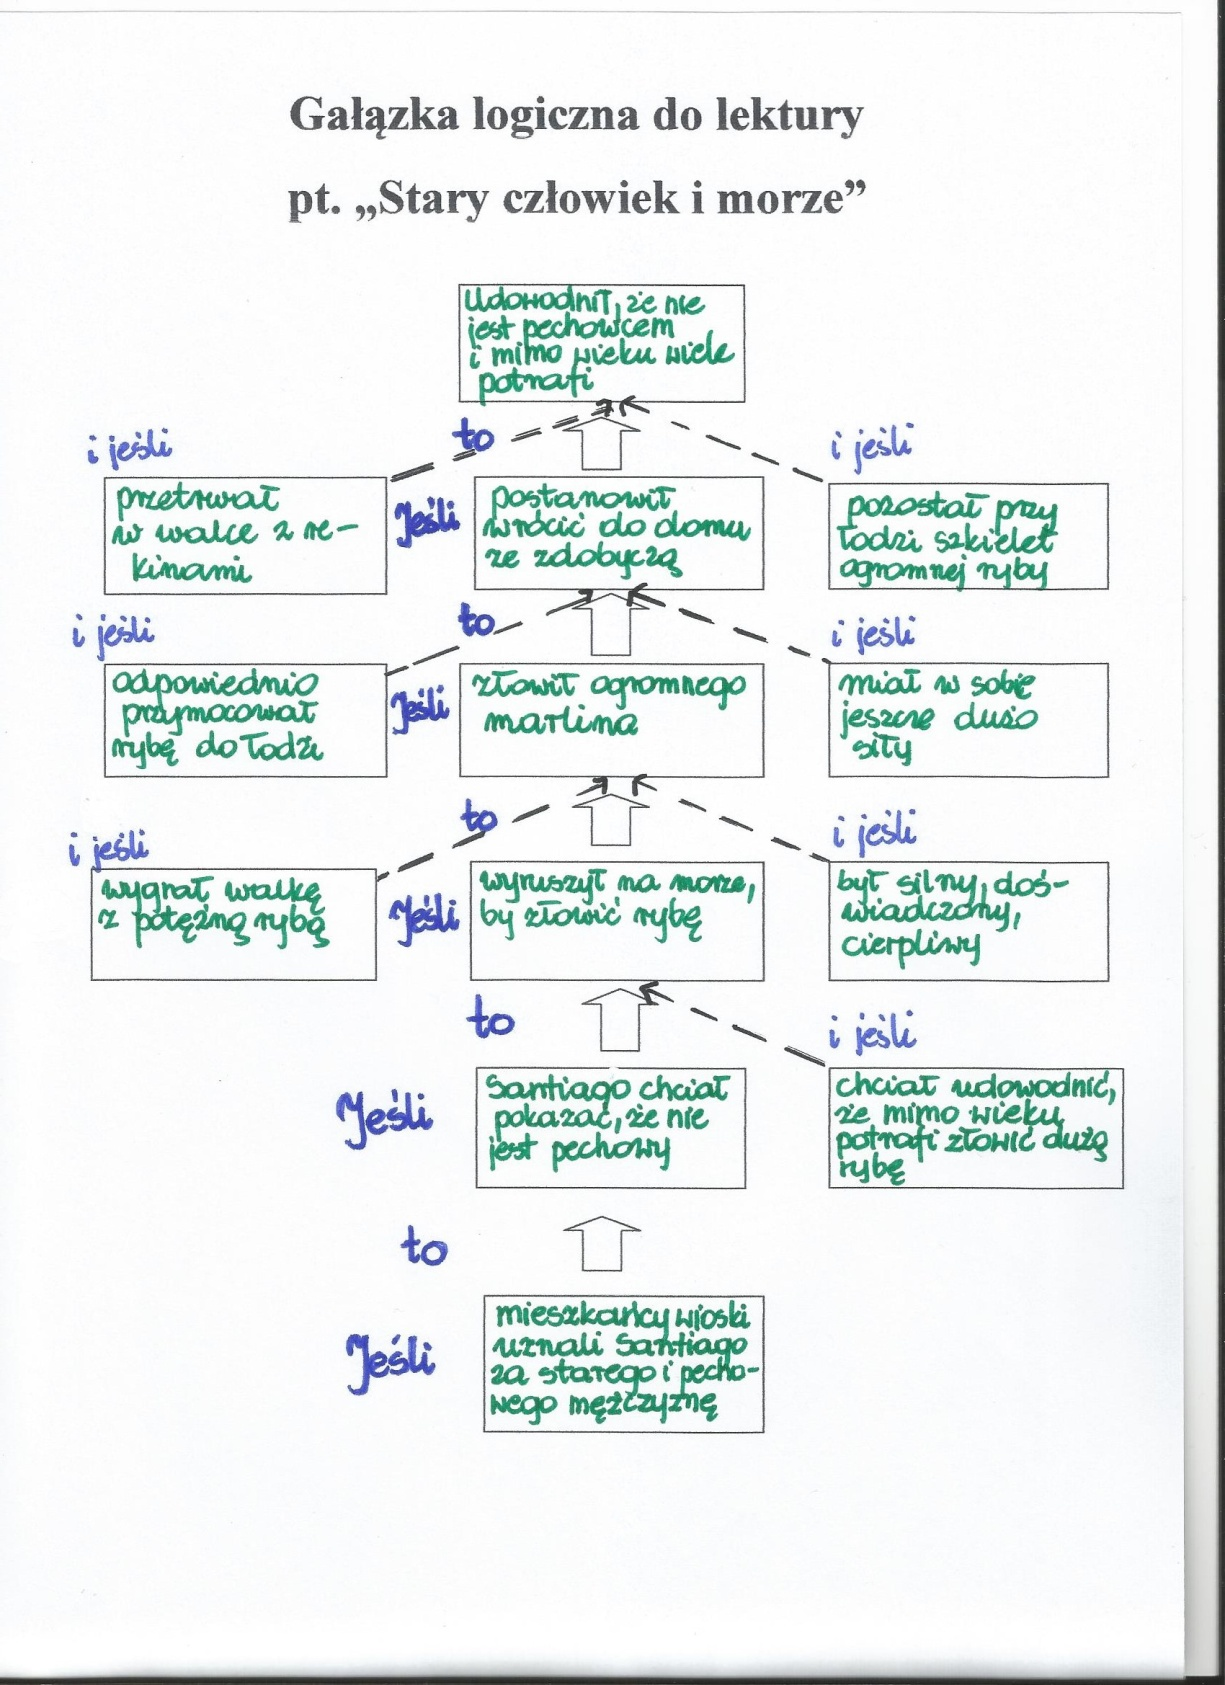 Gałązka logiczna do lektury
pt. „Stary człowiek i morze”
Udowodnił, że nie
jest pechowcem
i mimo wieku wiele
potrafi
i jeśli
to
i jeśli
przetrwał
w walce z re-
kinami
Jeśli
postanowił
wrócić do domu
ze zdobyczą
pozostał przy
łodzi szkielet
ogromnej ryby
i jeśli
to
i jeśli
odpowiednio
przymocował
rybę do łodzi
Jeśli
złowił ogromnego
marlina
miał w sobie
jeszcze dużo
siły
i jeśli
to
i jeśli
wygrał walkę
z potężną rybą
Jeśli
wyruszył na morze,
by złowić rybę
był silny, doś-
wiadczony,
cierpliwy
to
i jeśli
Jeśli
Santiago chciał
pokazać, że nie
jest pechowy
chciał udowodnić,
że mimo wieku
potrafi złowić dużą
rybę
to
Jeśli
mieszkańcy wioski
uznali Santiago
za starego i pecho-
wego mężczyznę